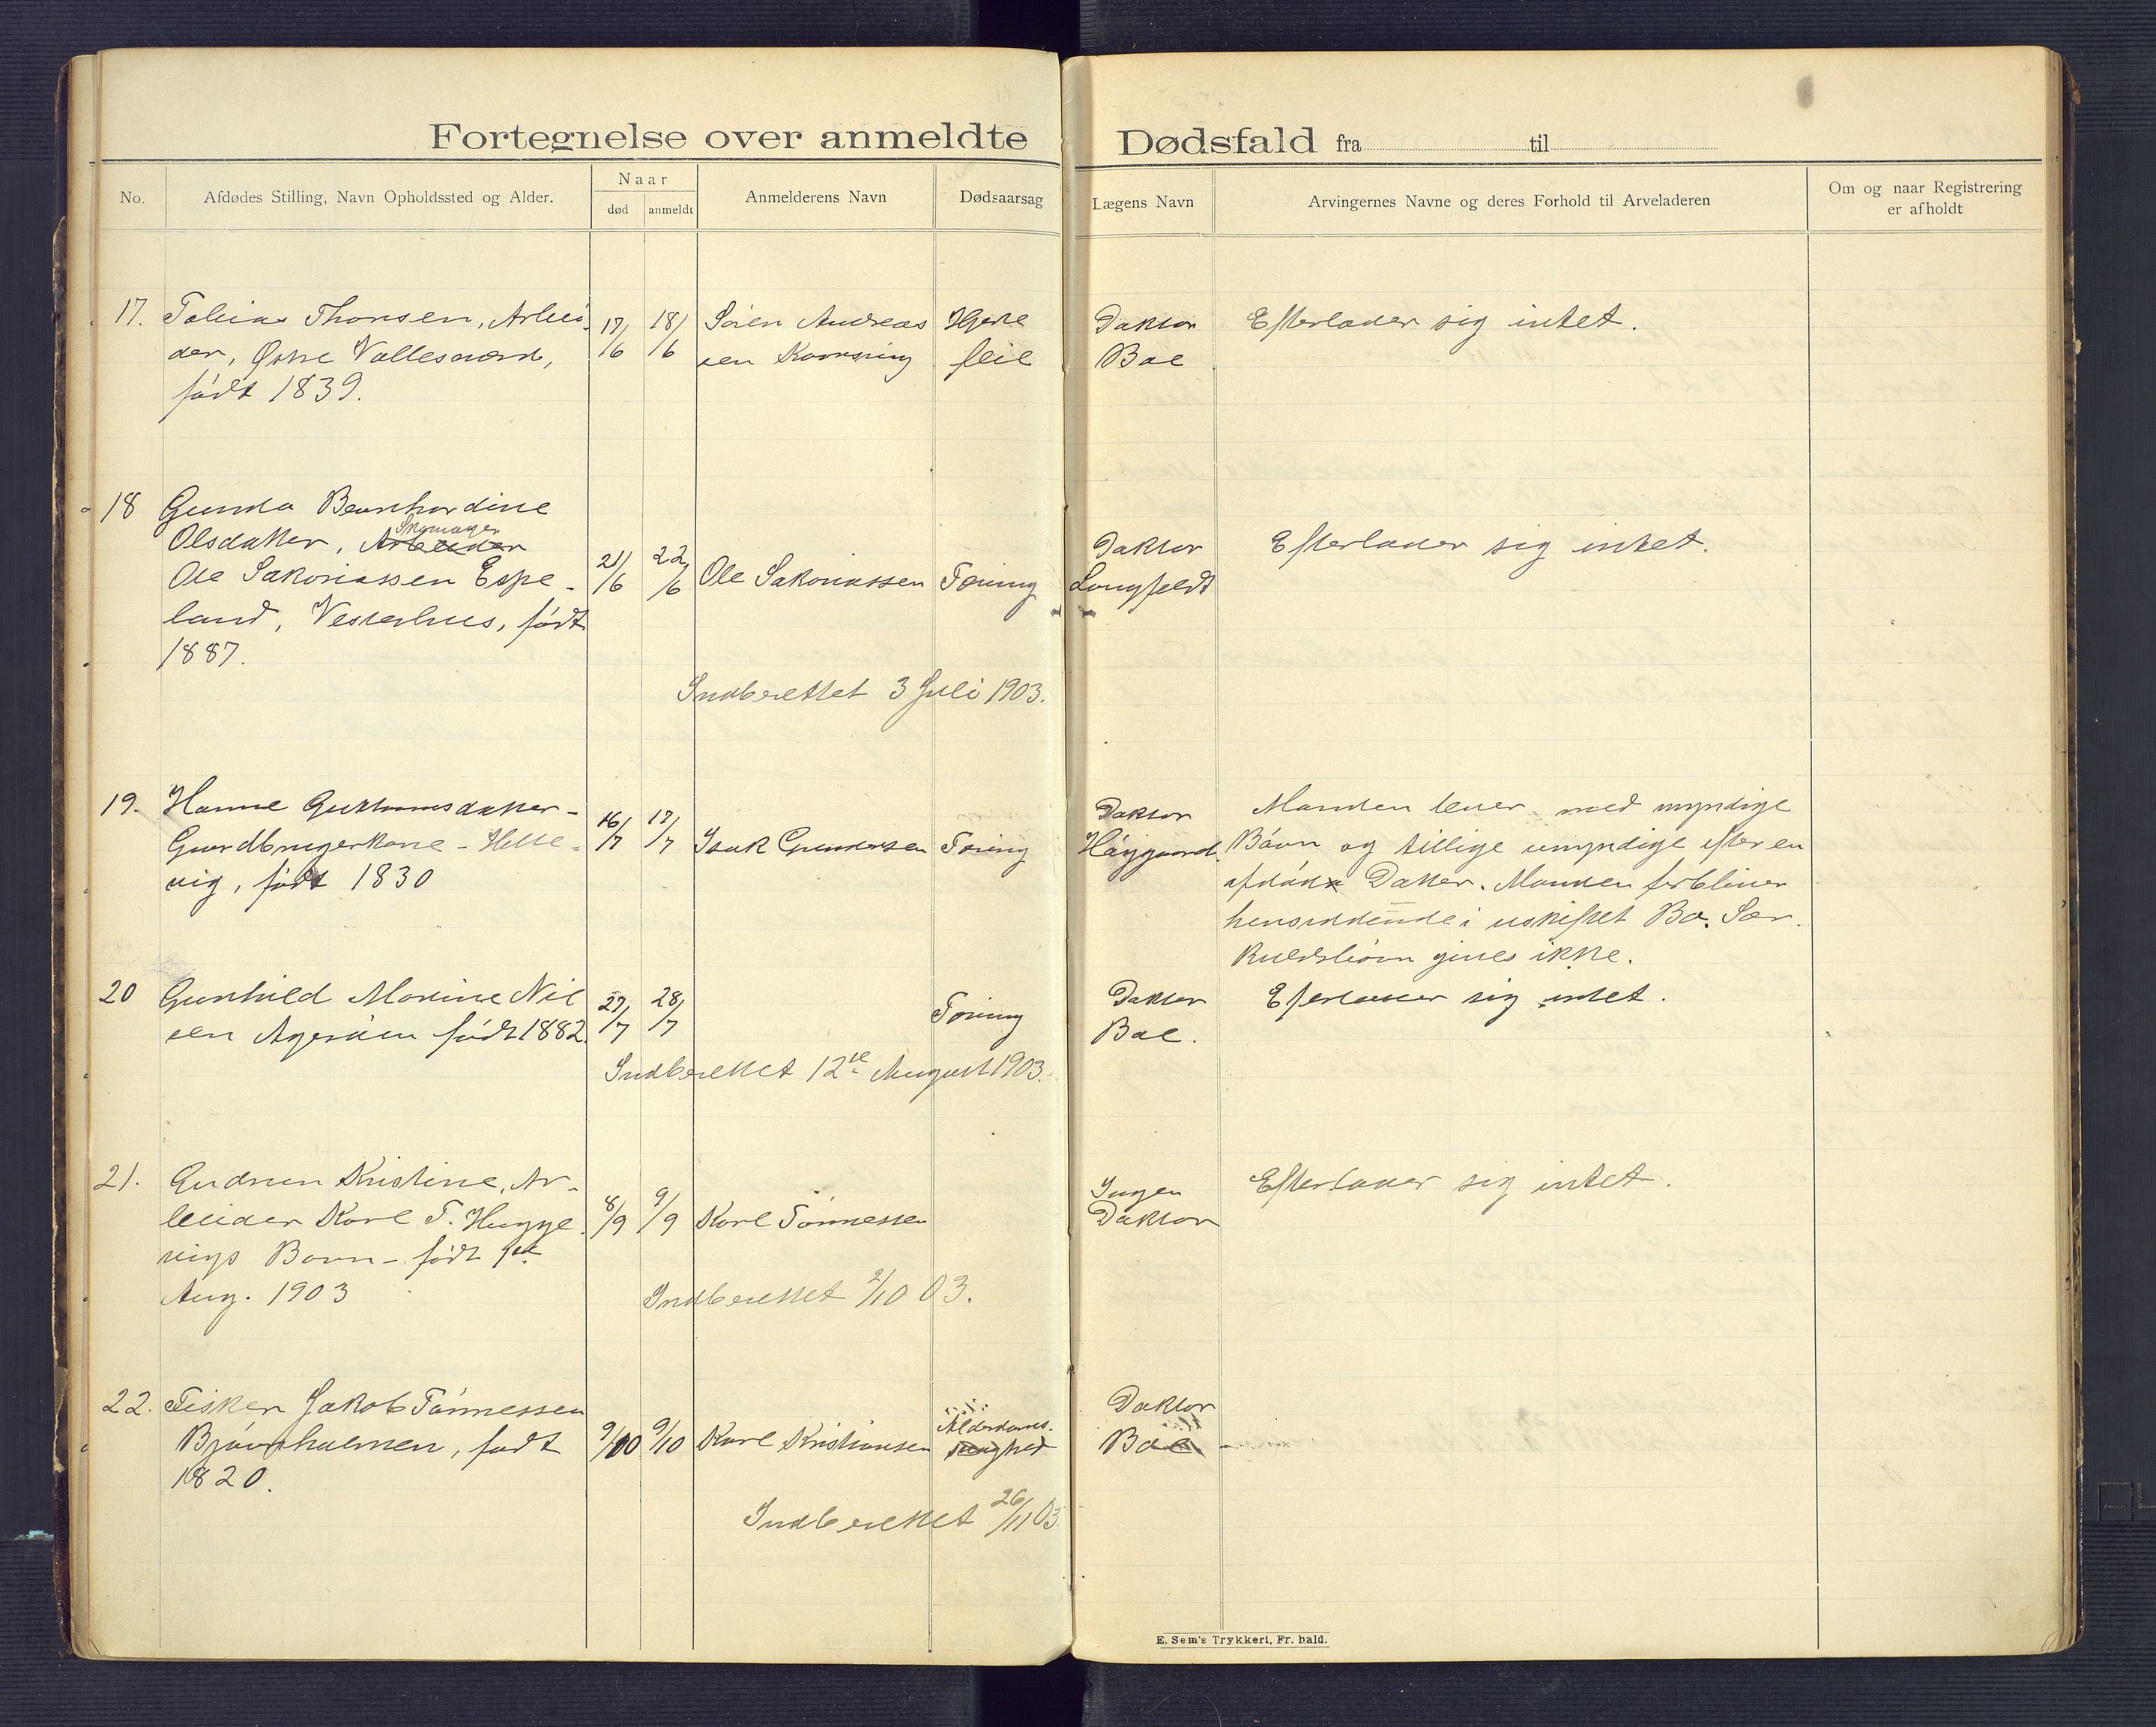 Fortegnelse over anmeldte Dødsfald fra til
No.
Afdødes Stilling, Navn Opholdssted og Alder.
Naar
død
anmeldt
Anmelderens Navn
Dødsaarsag
Lægens Navn
Arvingernes Navne og deres Forhold til Arveladeren
Om og naar Registrering
er afholdt
17. Tobias Thorsen, Arbei
der, Østre Vallesværd,
født 1839.
17/6
18/6
Søren Andreas
sen
Hjerte
feil
Doktor
Boe
Efterlader sig intet.
18 Gunda Bernhardine
Olsdatter, Arbeider Skomager
Ole Sakariassen Espe-
land, Vesterhus, født
1887.
21/6
22/6
Ole Sakariassen
Tæring
Doktor
Longfeldt
Efterlader sig intet.
Indberettet 3 Juli 1903.
19. Hanne Guttormsdatter -
Gaardbrugerkone - Helle-
vig, født 1830
16/7
17/7
Isak Gundersen
Tæring
Doktor
Høygaard.
Manden lever med myndige
Børn og tillige umyndige efter en
afdød Datter. Manden forbliver
hensiddende i uskiftet Bo. Sær-
kuldsbørn gives ikke.
20 Gunhild Marine Nil
sen Agerøen født 1882.
27/7
28/7
Tæring
Doktor
Boe.
Efterlader sig intet.
Indberettet 12te August 1903.
21. Gudrun Kristine, Ar-
beider Karl T. Hugge-
vigs Barn - født 1ste
Aug. 1903
8/9
9/9
Karl Tønnessen
Ingen
Doktor
Efterlader sig intet.
Indberettet 2/10 03.
22. Fisker Jakob Tønnessen
Bjørnholmen, født
1820.
9/10
9/10
Karl Kristiansen
Alderdoms-
svaghed
Doktor
Boe
Indberettet 26/11 03.
E. Sem's Trykkeri, Fr. hald.